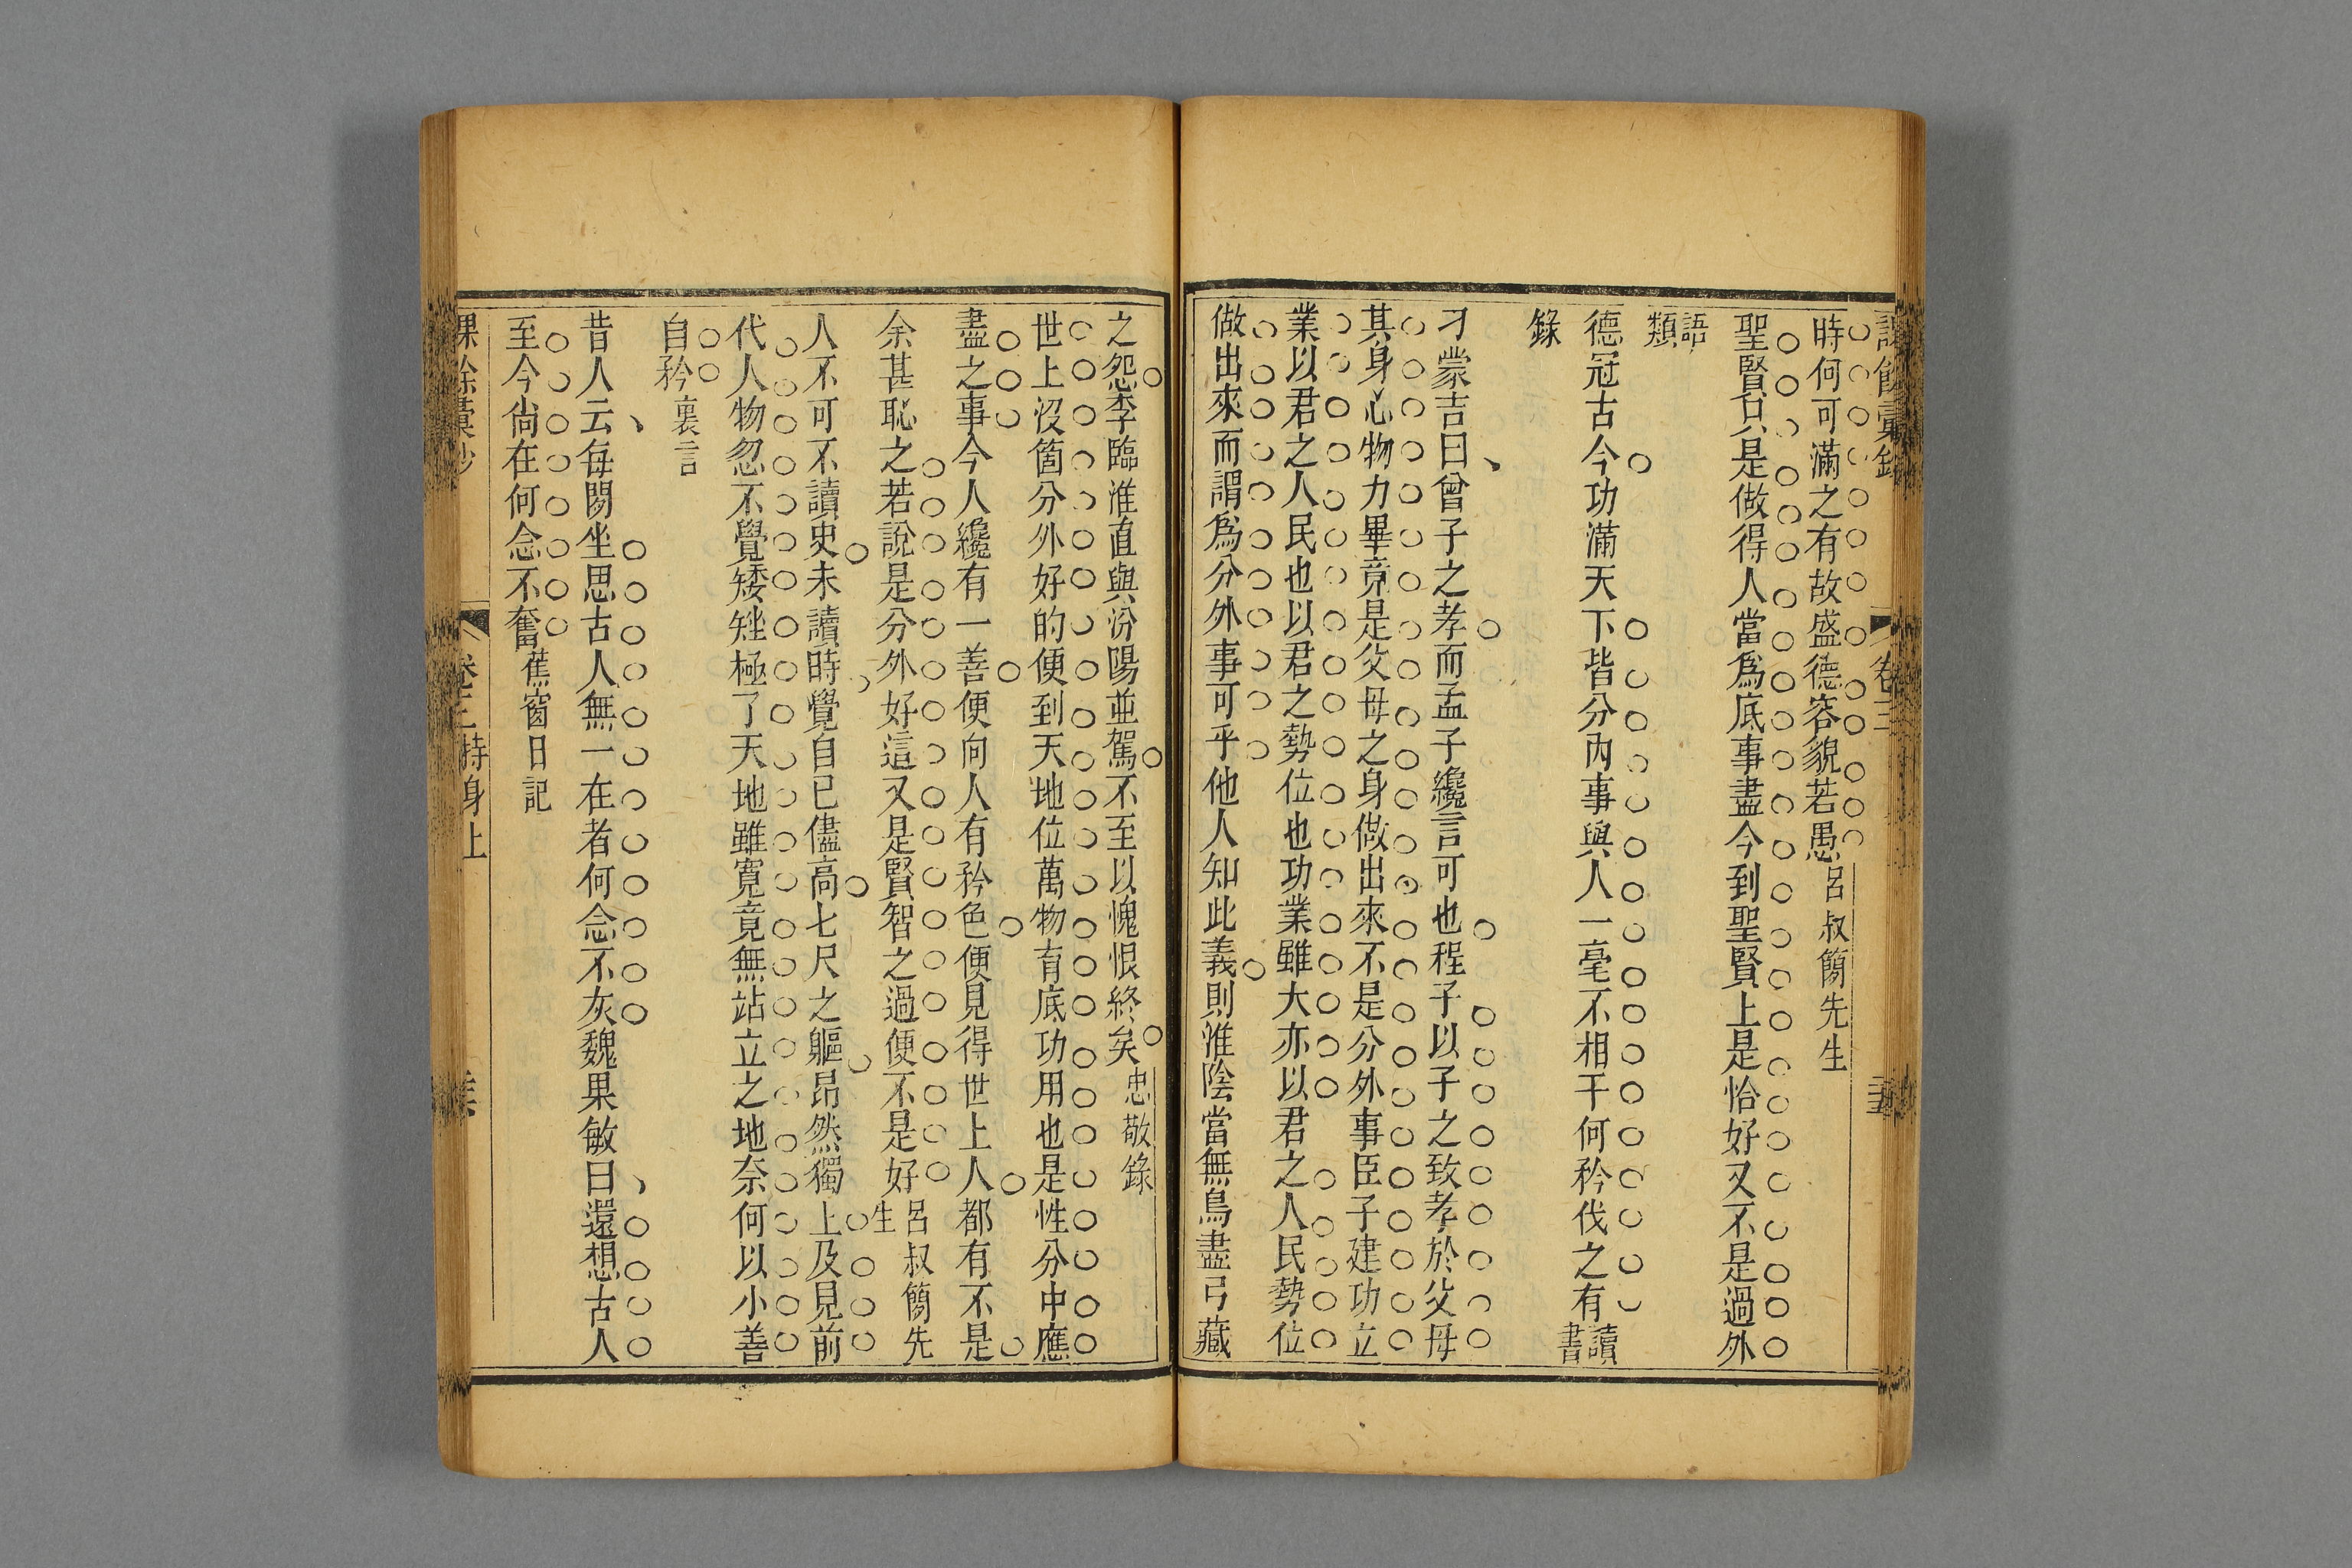 時何可滿之有故盛德容貌若愚呂叔簡先生
聖賢只是做得人當爲底事盡今到聖賢上是恰好又不是過外
語類
德冠古今功滿天下皆分內事與人一毫不相干何矜伐之有讀書
錄
刁蒙吉曰曾子之孝而孟子纔言可也程子以子之致孝於父母
其身心物力畢竟是父母之身做出來不是分外事臣子建功立
業以君之人民也以君之勢位也功業雖大亦以君之人民勢位
做出來而謂爲分外事可乎他人知此義則淮陰當無鳥盡弓藏
之怨李臨淮直與汾陽並駕不至以愧恨終矣忠敬錄
世上沒箇分外好的便到天地位萬物育底功用也是性分中應
盡之事今人纔有一善便向人有矜色便見得世上人都有不是
余甚恥之若說是分外好這又是賢智之過便不是好呂叔簡先生
人不可不讀史未讀時覺自已儘高七尺之軀昂然獨上及見前
代人物忽不覺矮矬極了天地雖寬竟無站立之地奈何以小善
自矜裏言
昔人云每閒坐思古人無一在者何念不灰魏果敏曰還想古人
至今尙在何念不奮蕉窗日記
持身上